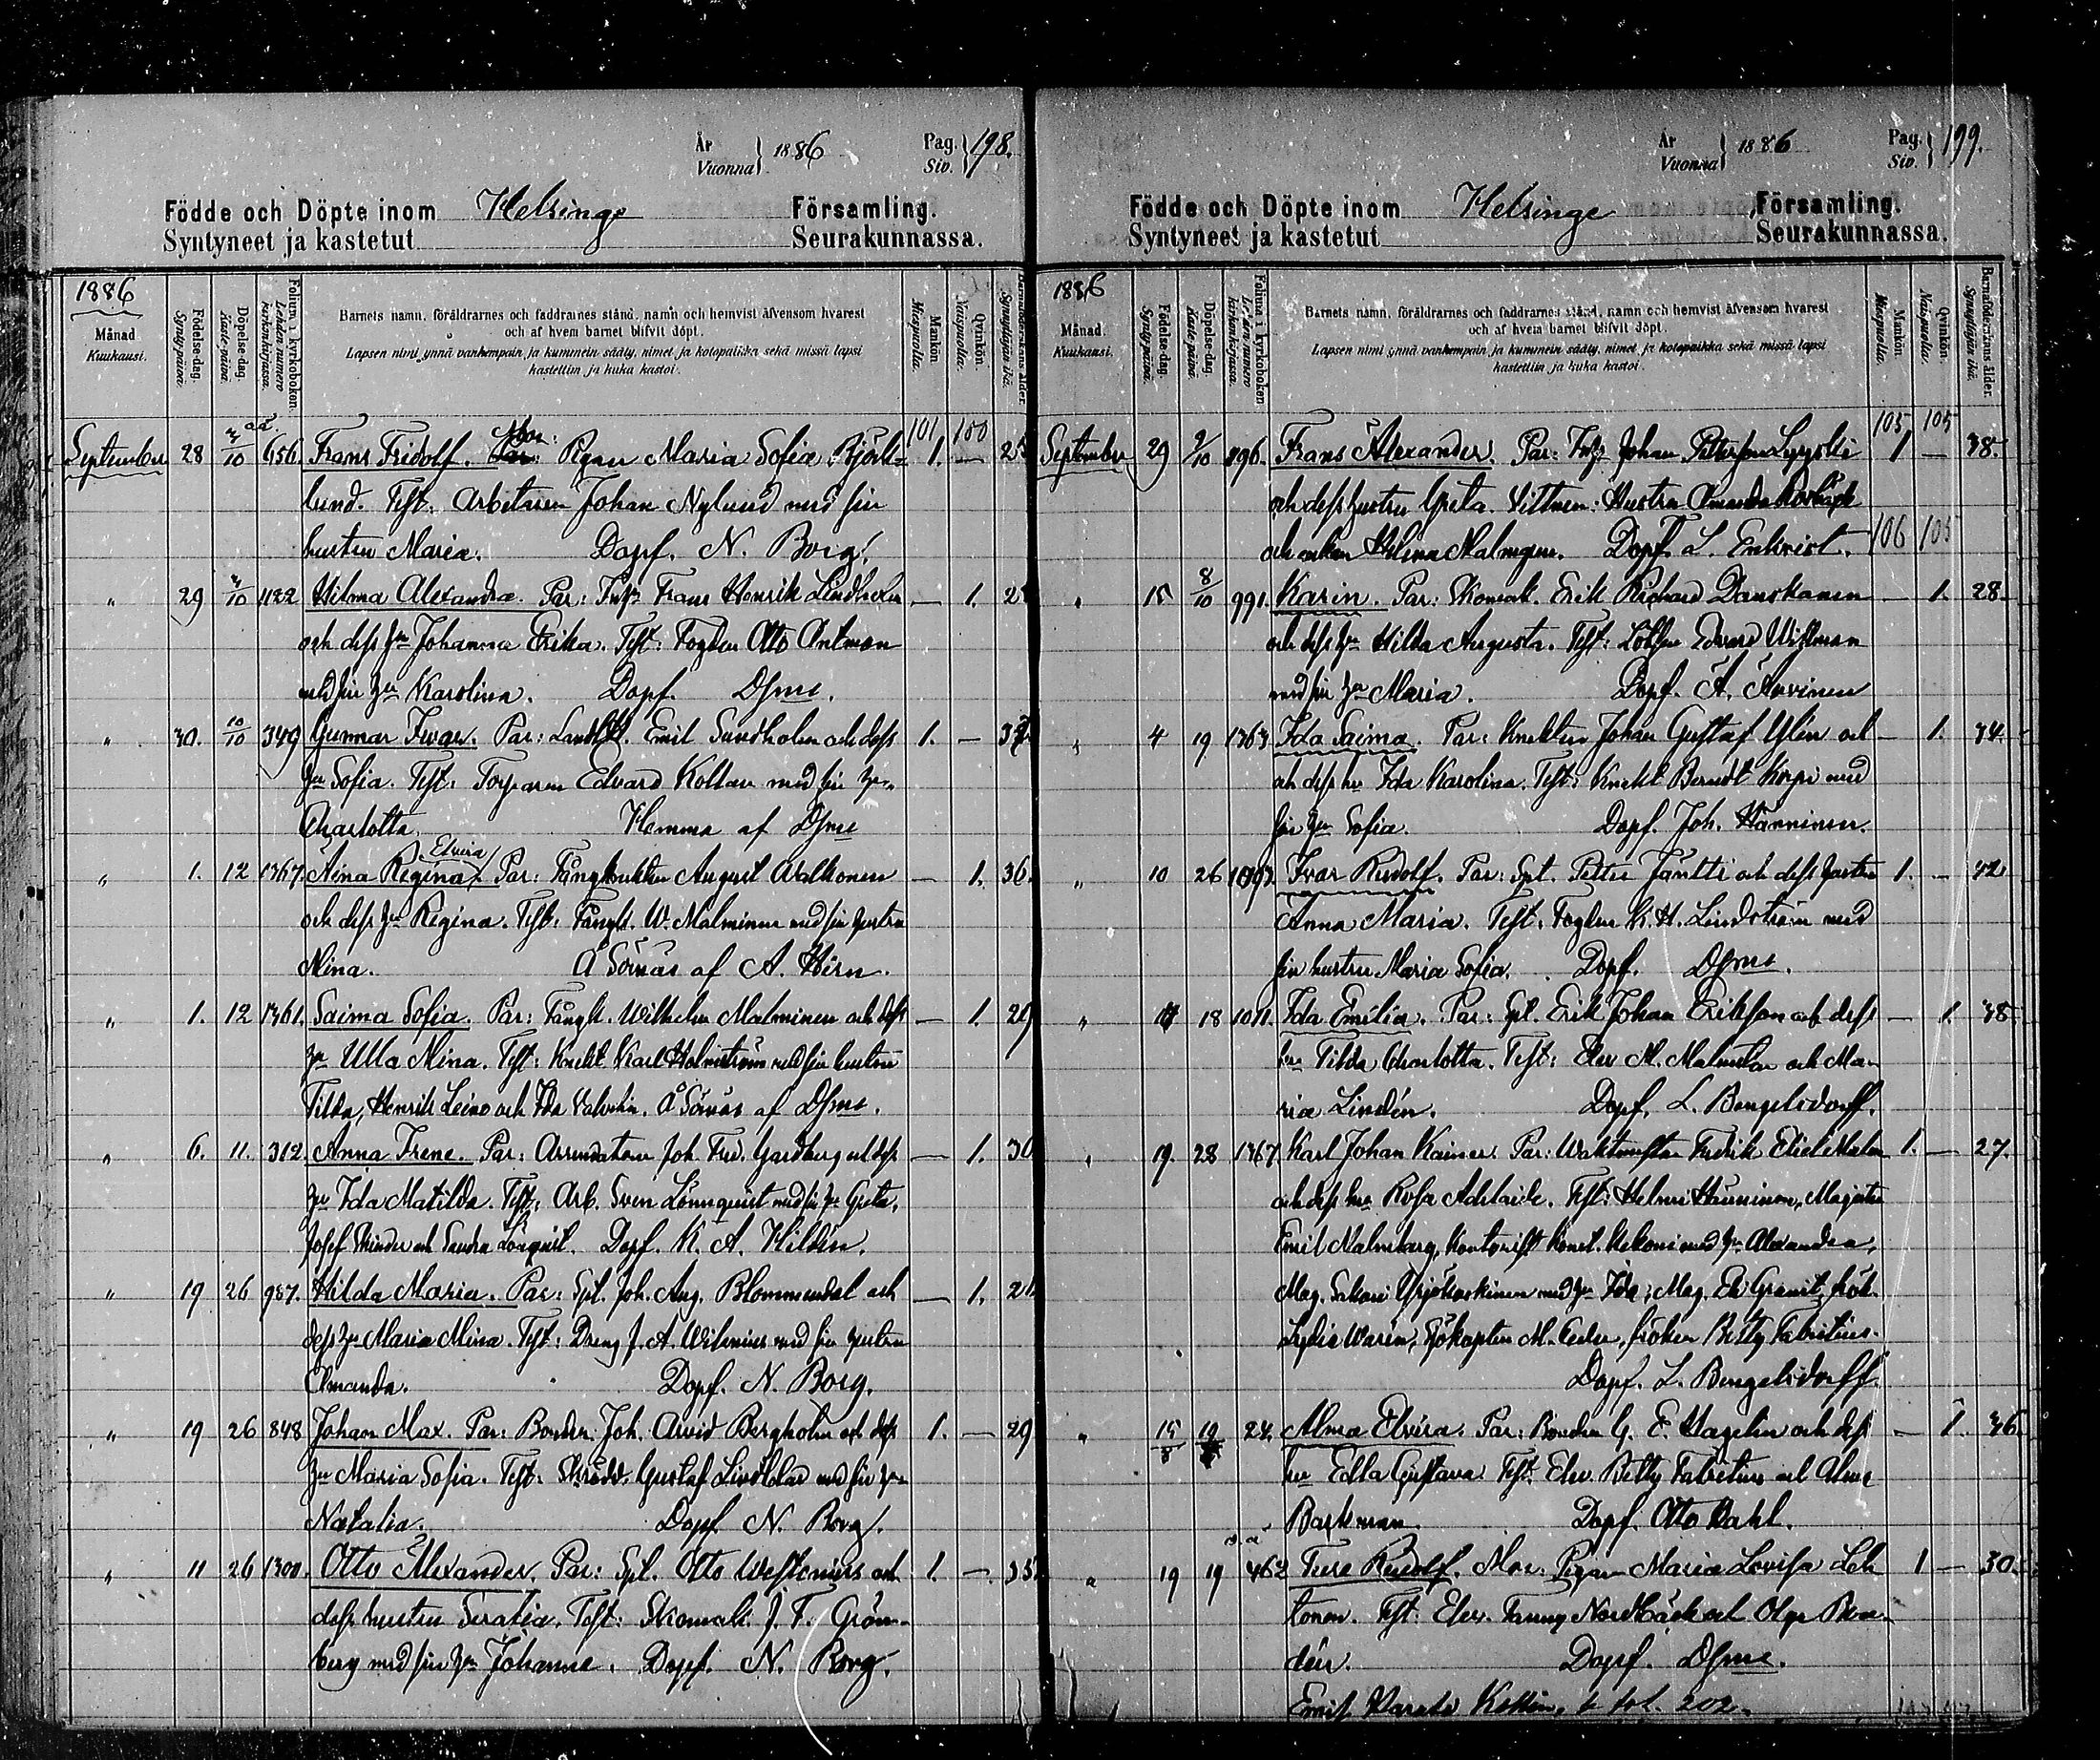 År
Vuonna } 1886
Pag.
Siv. } 198.
Födde och Döpte inom Helsinge Församling.
Syntyneet ja kastetut Seurakunnassa.
1886
Månad
Kuukausi.
Födelse-dag.
Syntypäivä.
Döpelse-dag.
Kaste-päivä.
Folium i kyrkoboken.
Lehden numero kirkonkirjassa.
Barnets namn, föräldrarnes och faddrarnes stånd, namn och hemvist äfvensom hvarest
och af hvem barnet blifvit döpt.
Lapsen nimi ynnä vanhempain ja kummein sääty, nimet ja kotopaikka sekä missä lapsi
kastettiin ja kuka kastoi.
Mankön.
Miespuolia.
Qvinkön.
Naispuolia.
Barnaföderskans ålder.
Synnyttäjän ikä.
101 100
September 28 3/10 656. Frans Fridolf. Mor: Pigan Maria Sofia Björk- 1. — 25
lund. Test: Arbetaren Johan Nylund med sin
hustru Maria. Döpf. N. Borg.
" 29 3/10 1122 Hilma Alexandra. Par: Inhs Frans Henrik Lindholm — 1. 2
och dess hu Johanna Erika. Test: Fogden Otto Antman
med sin hu Karolina. Döpf. Dsme.
" 30. 10/10 349 Gunnar Iwar. Par: Emil Sundholm och dess 1. — 37
hu Sofia. Test: Torparen Edvard Kollan med sin hu
Charlotta. Hemma af Dsme
Elvira
" 1. 12 1367. Aina Regina. Par: Fångknekten August Walkonen — 1. 36.
och dess hu Regina. Test: Fångk. W. Malminen med sin hustru
Mina. Å Sörnäs af A. Hirn.
" 1. 12 1361. Saima Sofia. Par: Fångk. Wilhelm Malminen och dess — 1. 29
hu Ulla Mina. Test: Knekt Karl Holmström med sin hustru
Tilda, Henrik Leino och Ida Å Sörnäs af Dsme.
" 6. 11. 312. Anna Irene. Par: Arrendatorn Joh. Fred. Gardberg och dess — 1. 30
hu Ida Matilda. Test: Arb. Sven Lönnquist med sin hu Greta,
Josef och Sandra Lönquist. Döpf. K. A. Hildén.
" 19 26 987. Hilda Maria. Par: Spl. Joh. Aug. Blommendal och — 1. 21
dess hu Maria Mina. Test: Dreng J. A. Wilenius med sin hustru
Amanda. Döpf. N. Borg.
" 19 26 848 Johan Max. Par: Bonden Joh. Arvid Bergholm och dess 1. — 29
hu Maria Sofia. Test: Skrädd. Gustaf Lindblad med sin hu
Natalia. Döpf. N. Borg.
" 11 26 1300. Otto Alexander. Par: Spl. Otto och 1. — 35
dess hustru Serafia. Test: Skomak. J. F. Grön-
berg med sin hu Johanna. Döpf. N. Borg.
År
Vuonna } 1886
Pag.
Siv. } 199.
Födde och Döpte inom Helsinge Församling.
Syntyneet ja kastetut Seurakunnassa.
1886
Månad.
Kuukausi.
Födelse-dag.
Syntypäivä.
Döpelse-dag.
Kaste-päivä.
Folium i kyrkoboken.
Lehden numero kirkonkirjassa.
Barnets namn, föräldrarnes och faddrarnes stånd, namn och hemvist äfvensom hvarest
och af hvem barnet blifvit döpt.
Lapsen nimi ynnä vanhempain ja kummein sääty, nimet ja kotopaikka sekä missä lapsi
kastettiin ja kuka kastoi.
Mankön.
Miespuolia.
Qvinkön.
Naispuolia.
Barnaföderskans ålder.
Synnyttäjän ikä.
105 105
September 29 9/10 896. Frans Alexander. Par: Inhs Johan Petterson 1 — 38.
och dess hustru Greta. Vittnen: Hustru Amanda
och enkan Helena Malmgren. Döpf. L. Enkvist. 106 105
" 15 8/10 991. Karin. Par: Skomak. Erik Richard Danskanen — 1. 28.
och dess hu Hilda Augusta. Test: Edvard Wikman
med sin hu Maria. Döpf. A. Auvinen
" 4 19 1363 Ida Saima. Par: Knekten Johan Gustaf Ylin och — 1. 34.
och dess hu Ida Karolina. Test: Knekt Berndt Korpi med
sin hu Sofia. Döpf. Joh. Hänninen.
" 10 26 Ivar Rudolf. Par: Spt. Petter Jäntti och dess hustru 1. — 42
Anna Maria. Test: Fogden K. H. Lindström med
sin hustru Maria Sofia. Döpf. Dsme.
" 18 1011. Ida Emilia. Par: Spl. Erik Johan Erikson och dess — 1. 38
hu Tilda Charlotta. Test: Elev M. och Ma-
ria Lindén. Döpf. L. Bengelsdorff.
" 19. 28 1367. Karl Johan Kainer. Par: Waktmästar Fredrik Eliel Malm 1. — 27.
och dess hu Rosa Adelaide. Test: Helmi Hänninen, Magister
Emil Malmberg, Kekoni med hu Alexandra,
Mag. Sakari Yrjökoskinen med hu Ida; Mag. Eli Granit, frök.
Lydia Warén, Sjökapten M. fröken Betty Fabritius.
Döpf. L. Bengelsdorff.
" 15/8 19 24. Alma Elvira. Par: Bonden G. E. Hagelin och dess — 1. 36.
hu Edla Gustava. Test: Elev. Betty Fabritius och Alma
Backman. Döpf. Otto Dahl.
" 19 19 462 Ture Rudolf. Mor: Pigan Maria Lovisa Leh- 1 — 30.
tonen. Test: Elev. Fanny Nordbäck och Olga
dén. Döpf. Dsme.
fol. 202.